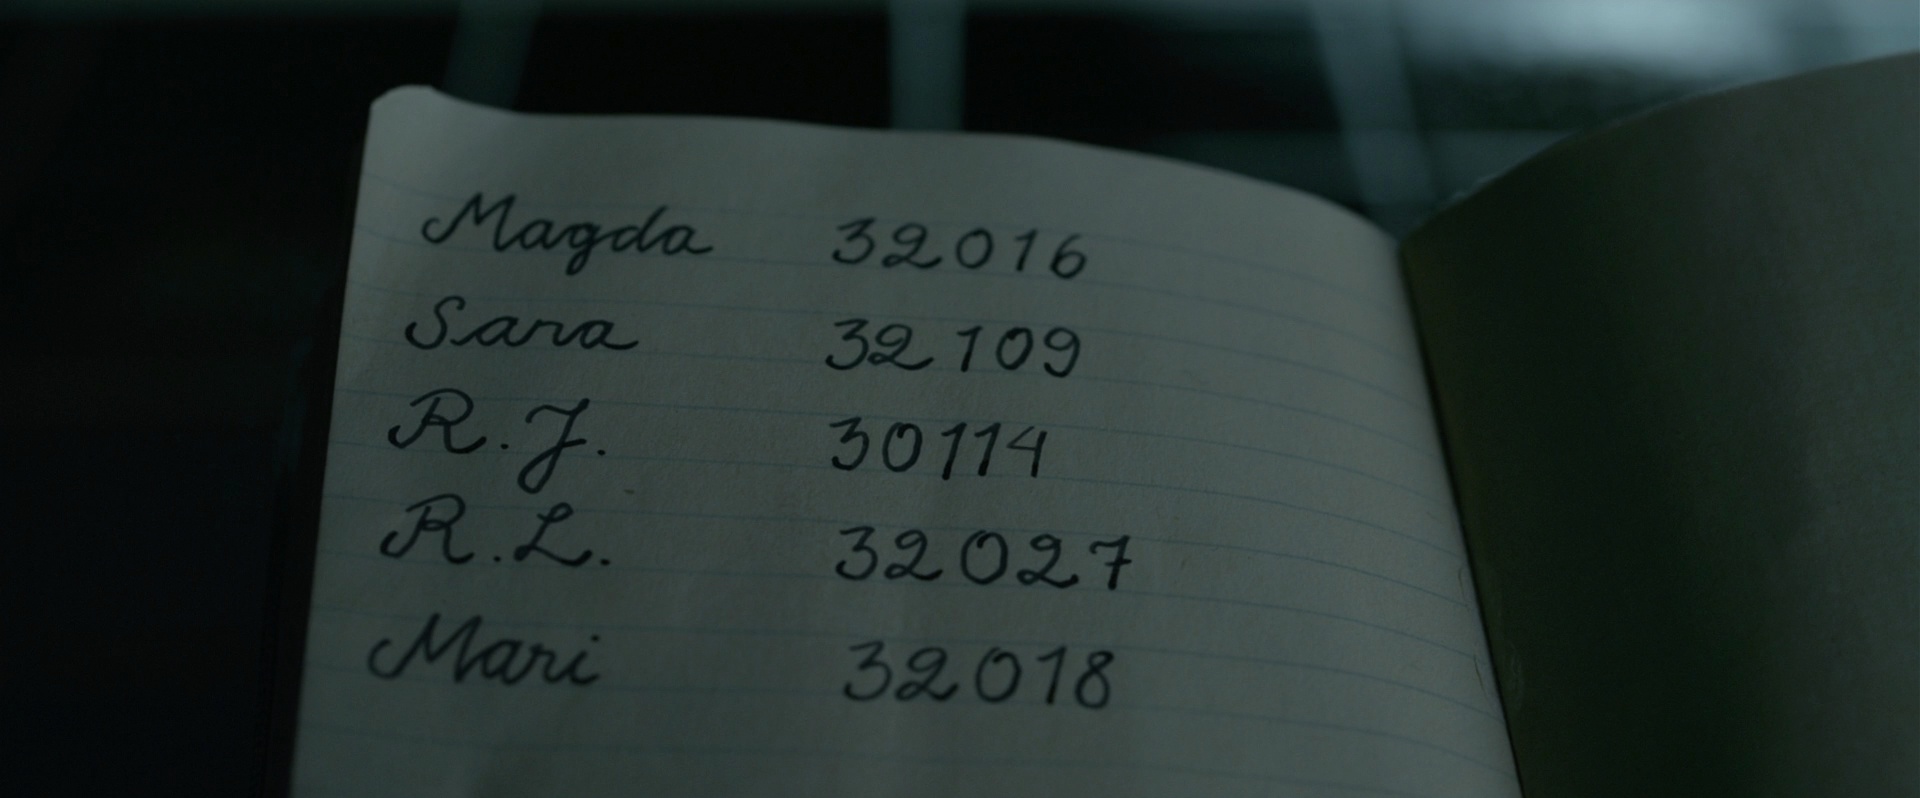 Magda 32016
Sara 32109
R.J. 30114
R.L. 32027
Mari 32018